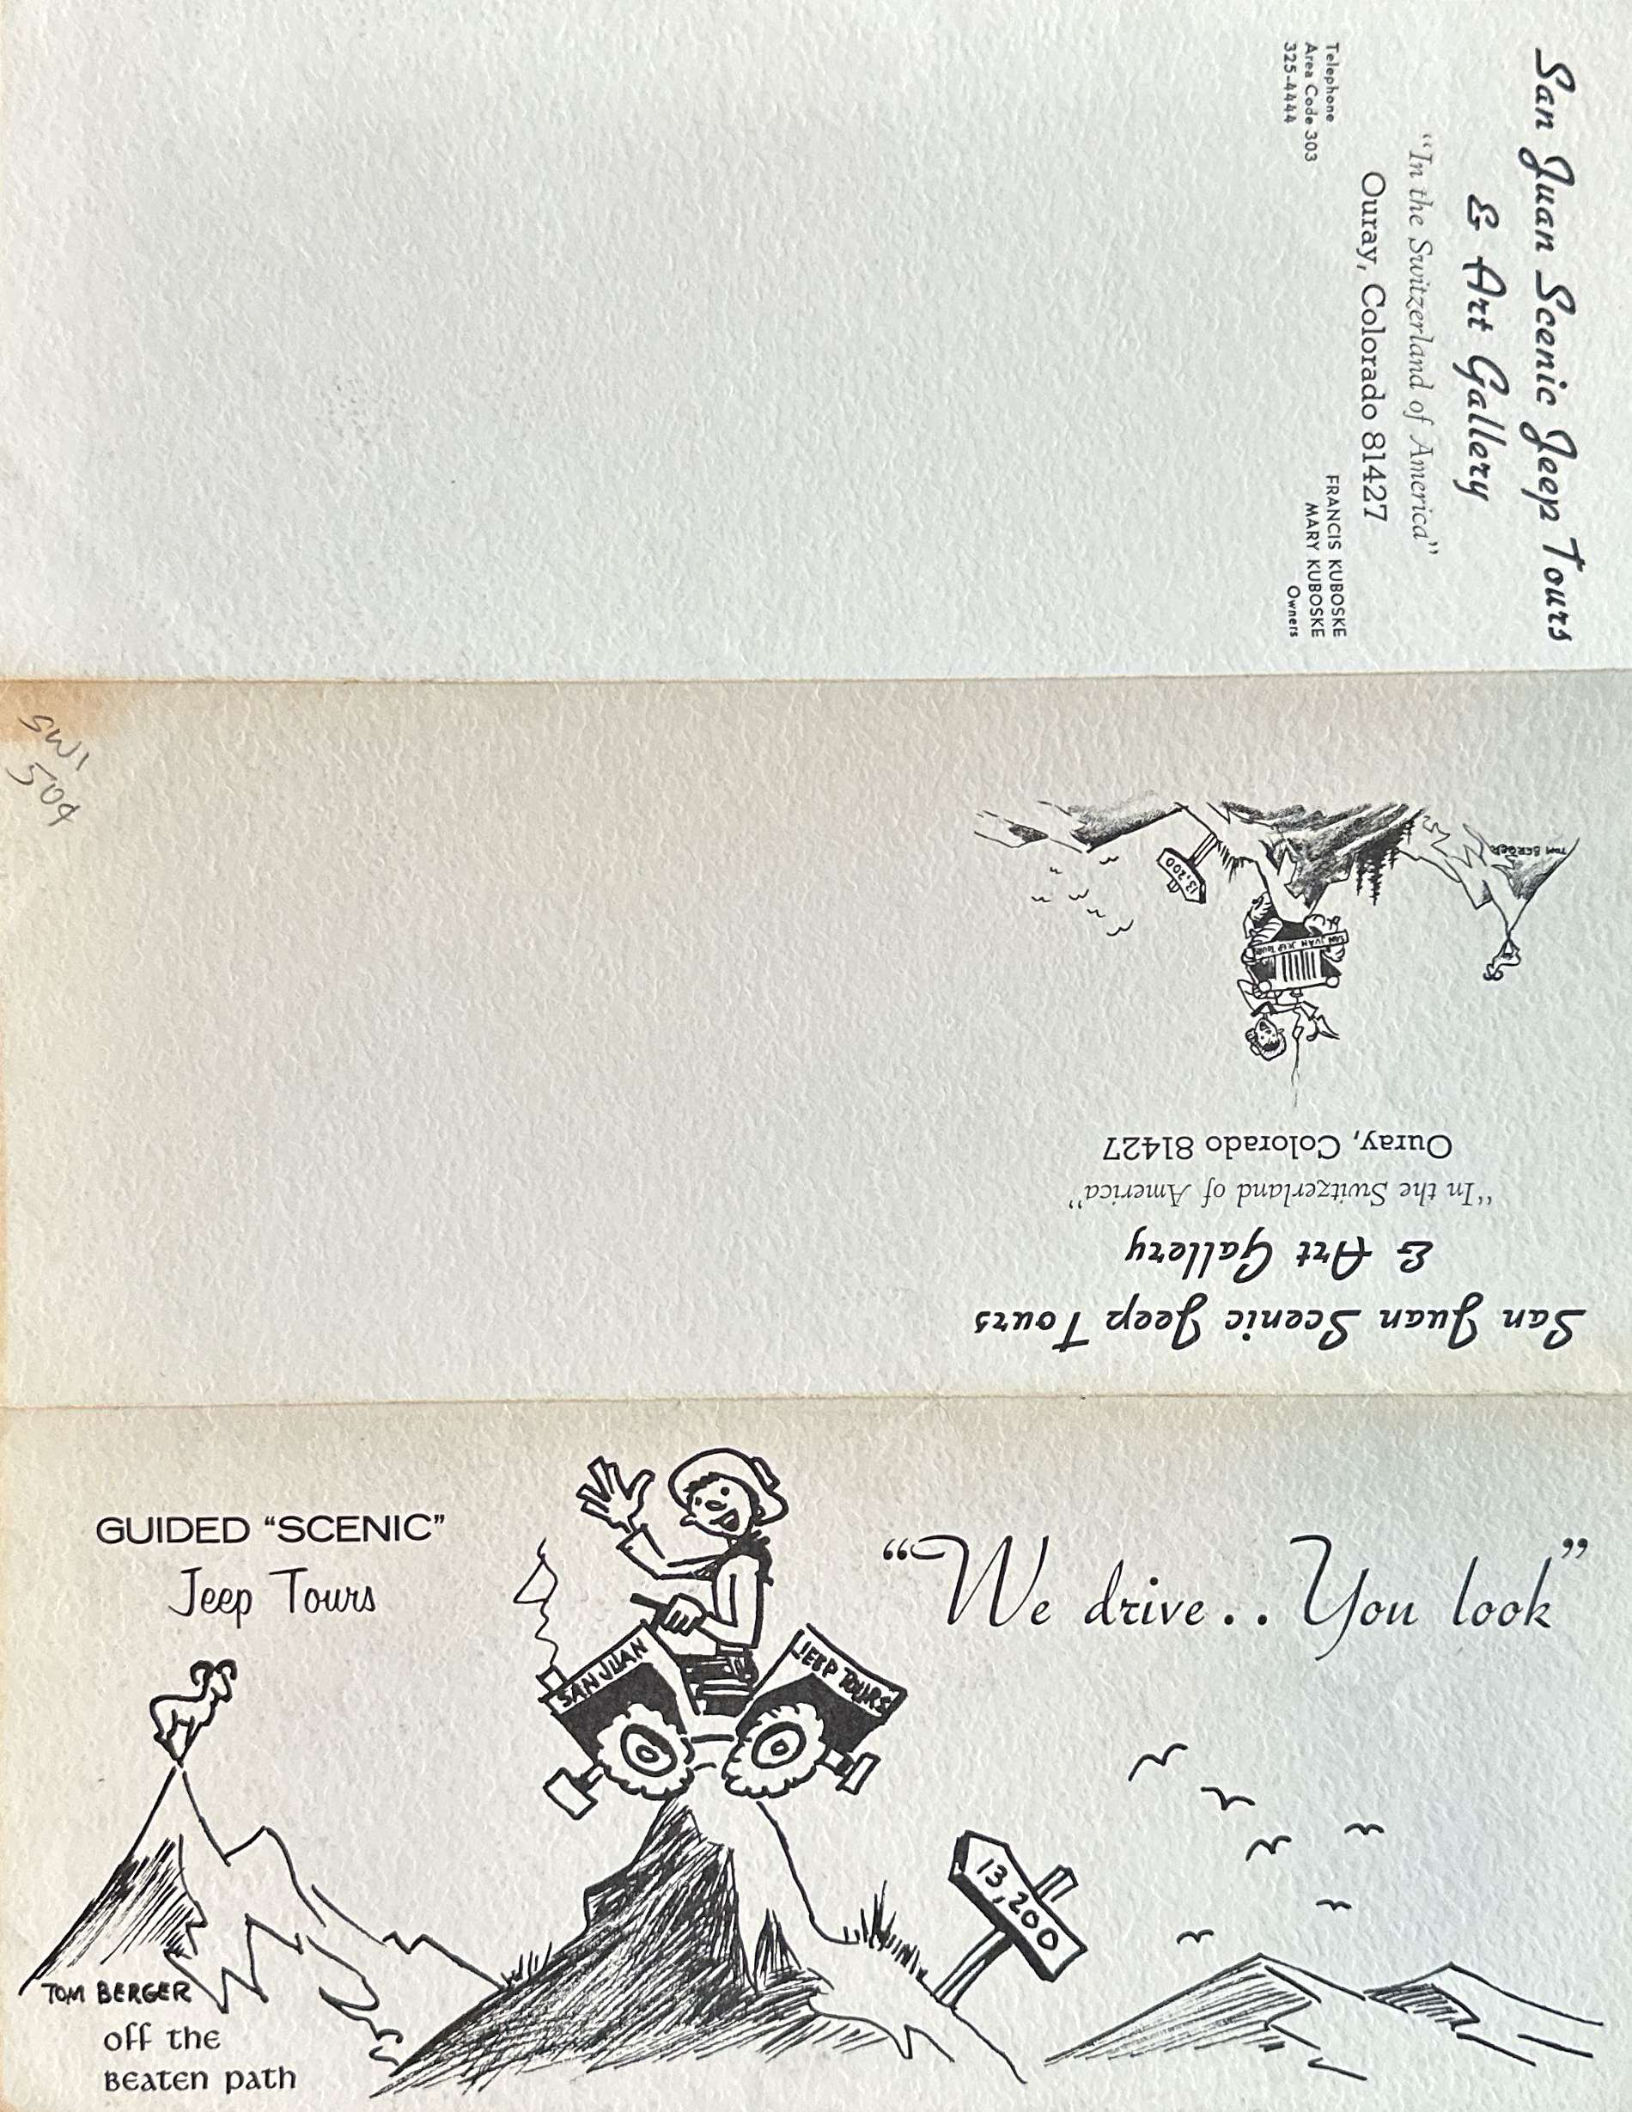 San Juan Scenic Jeep Tours
& Art Gallery
"In the Switzerland of America"
Ouray, Colorado 81427
Telephone
Area Code 303
325-4444
FRANCIS KUBOSKE
MARY KUBOSKE
Owners
SW1
504
San Juan Scenic Jeep Tours
& Art Gallery
"In the Switzerland of America"
Ouray, Colorado 81427
SAN JUAN JEEP TOURS
13,200
TOM BERGER
GUIDED "SCENIC"
Jeep Tours
"We drive.. You look"
SAN JUAN
JEEP TOURS
13,200
TOM BERGER
off the
Beaten path